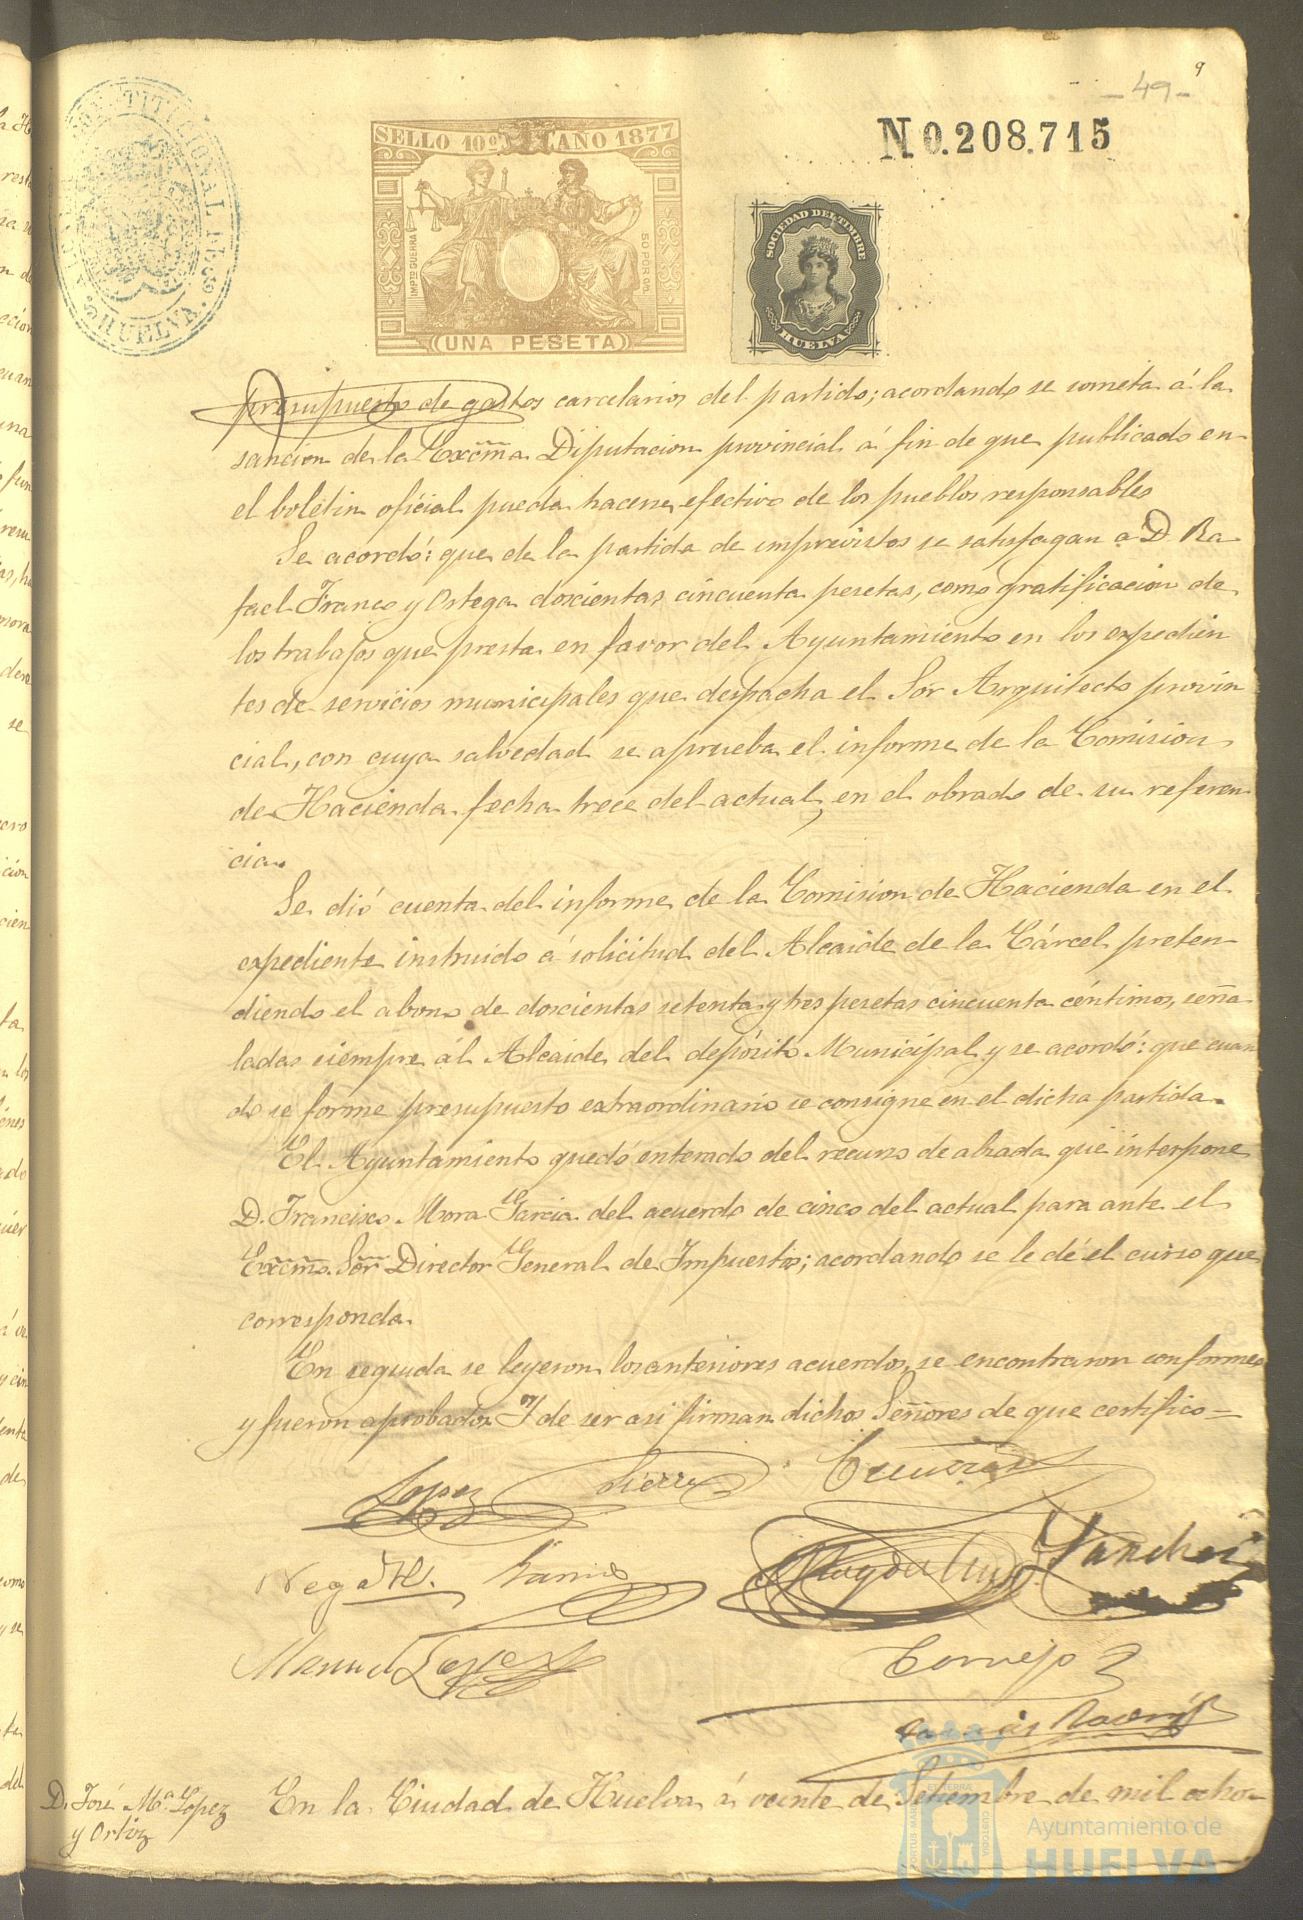 9
- 49 -
N 0.208.715
SELLO 10º AÑO 1877
IMPTO GUERRA
50 POR 100
UNA PESETA
SOCIEDAD DEL TIMBRE
HUELVA
HUELVA
presupuesto de gastos carcelarios del partido; acordando se someta á la
sancion de la Excma Diputacion provincial á fin de que publicado en
el boletin oficial pueda hacerse efectivo de los pueblos responsables
Se acordó: que de la partida de imprevistos se satisfagan a D. Ra
fael Franco y Ortega doscientas cincuenta pesetas, como gratificacion de
los trabajos que presta en favor del Ayuntamiento en los expedien
tes de servicios municipales que despacha el Sor Arquitecto provin
cial, con cuya salvedad se aprueba el informe de la Comision
de Hacienda fecha trece del actual, en el obrado de su referen
cia.
Se dió cuenta del informe de la Comision de Hacienda en el
expediente instruido á solicitud del Alcaide de la Cárcel preten
diendo el abono de doscientas setenta y tres pesetas cincuenta céntimos, seña
ladas siempre al Alcaide del depósito Municipal y se acordó: que cuan
do se forme presupuesto extraordinario se consigne en el dicha partida.
El Ayuntamiento quedó enterado del recurso de alzada que interpone
D. Francisco Mora Garcia del acuerdo de cinco del actual para ante el
Excmo. Sor Director General de Impuestos; acordando se le dé el curso que
corresponda.
En seguida se leyeron los anteriores acuerdos, se encontraron conformes
y fueron aprobados. Y de ser asi firman dichos Señores de que certifico=
Lopez Sierra
Sanchez
Manuel Lopez
Cornejo
D. José Mª Lopez
y Ortiz
En la Ciudad de Huelva á veinte de Setiembre de mil ocho-
Ayuntamiento de
HUELVA